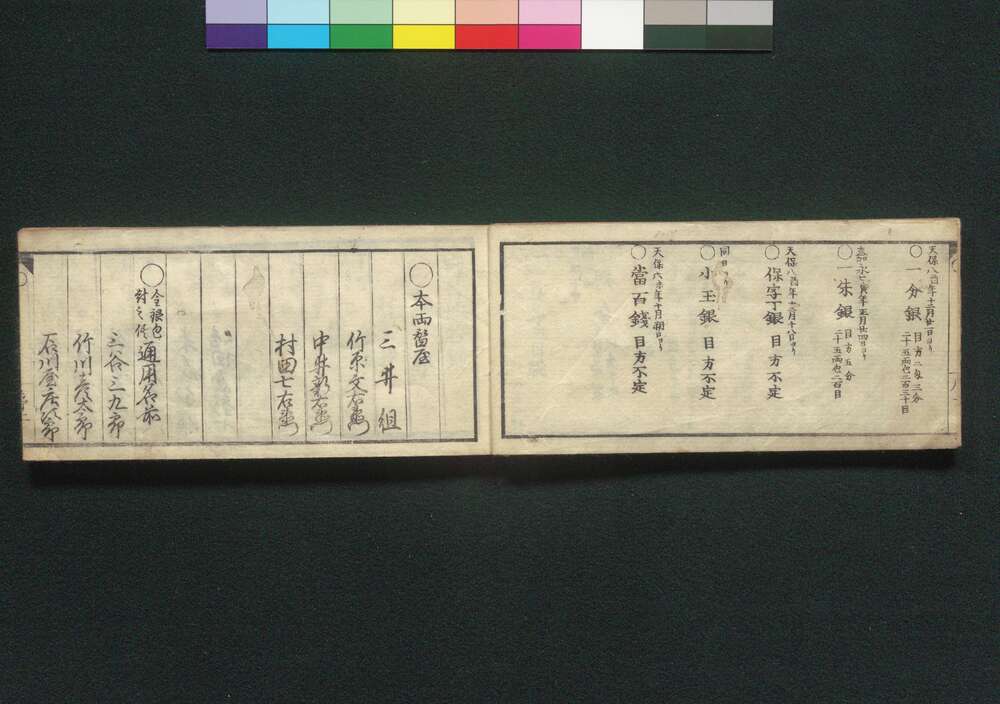 天保八酉年十二月廿一日ヨリ
〇一分銀 目方二匁三分
二十五両包二百三十目
嘉永七寅年正月廿四日ヨリ
〇一朱銀 目方五分
二十五両包二百目
天保八酉年十二月十八日ヨリ
〇保字丁銀 目方不定
同日ヨリ
〇小玉銀 目方不定
天保六未年十月朔日ヨリ
〇當百錢 目方不定
〇本両替屋
三井組
竹原文右衛門
中井新右衛門
村田七右衛門
〇金銀包
封之代
通用名前
三谷三九郎
竹川彦太郎
石川屋庄次郎